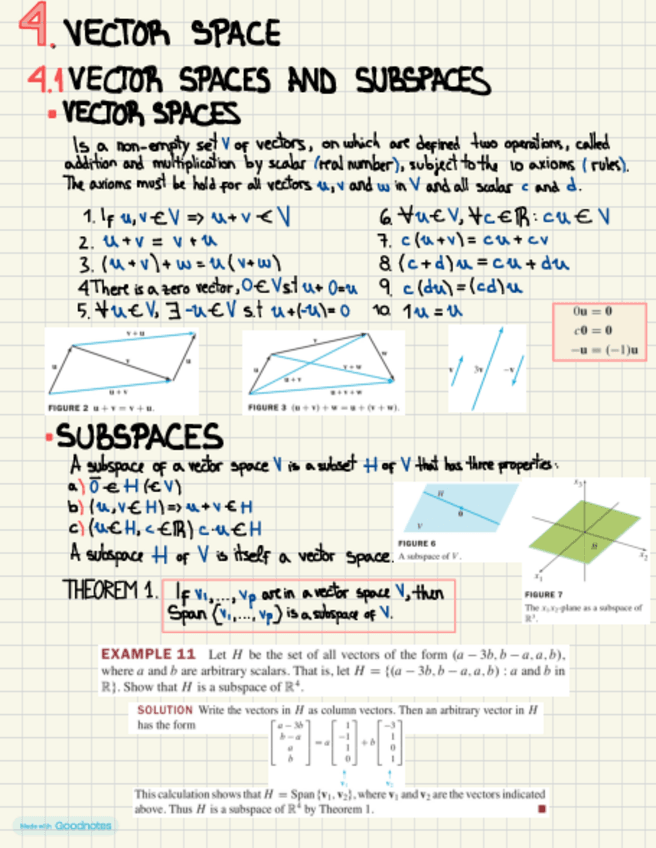 4. VECTOR SPACE
4.1 VECTOR SPACES AND SUBSPACES
▪ VECTOR SPACES
Is a non-empty set V of vectors, on which are defined two operations, called
addition and multiplication by scalar (real number), subject to the 10 axioms (rules).
The axioms must be hold for all vectors u, v and w in V and all scalar c and d.
1. If u, v ∈ V => u + v ∈ V
2. u + v = v + u
3. (u + v) + w = u (v + w)
4 There is a zero vector, 0 ∈ V s.t u + 0 = u
5. ∀u ∈ V, ∃ -u ∈ V s.t u + (-u) = 0
6. ∀u ∈ V, ∀c ∈ ℝ : cu ∈ V
7. c(u + v) = cu + cv
8. (c + d)u = cu + du
9. c(du) = (cd)u
10. 1u = u
0u = 0
c0 = 0
-u = (-1)u
v + u
u
v
u
u + v
FIGURE 2 u + v = v + u.
v
u
w
u + v
v + w
u + v + w
FIGURE 3 (u + v) + w = u + (v + w).
v
3v
-v
▪ SUBSPACES
A subspace of a vector space V is a subset H of V that has three properties:
a) 0̄ ∈ H (∈ V)
b) (u, v ∈ H) => u + v ∈ H
c) (u ∈ H, c ∈ ℝ) c·u ∈ H
A subspace H of V is itself a vector space.
H
0
V
FIGURE 6
A subspace of V.
x3
H
x2
x1
FIGURE 7
The x1x2-plane as a subspace of
ℝ³.
THEOREM 1. If v1, ..., vp are in a vector space V, then
Span {v1, ..., vp} is a subspace of V.
EXAMPLE 11 Let H be the set of all vectors of the form (a − 3b, b − a, a, b),
where a and b are arbitrary scalars. That is, let H = {(a − 3b, b − a, a, b) : a and b in
ℝ}. Show that H is a subspace of ℝ⁴.
SOLUTION Write the vectors in H as column vectors. Then an arbitrary vector in H
has the form
[a − 3b, b − a, a, b] = a [1, −1, 1, 0] + b [−3, 1, 0, 1]
v1 v2
This calculation shows that H = Span {v1, v2}, where v1 and v2 are the vectors indicated
above. Thus H is a subspace of ℝ⁴ by Theorem 1.
Made with Goodnotes